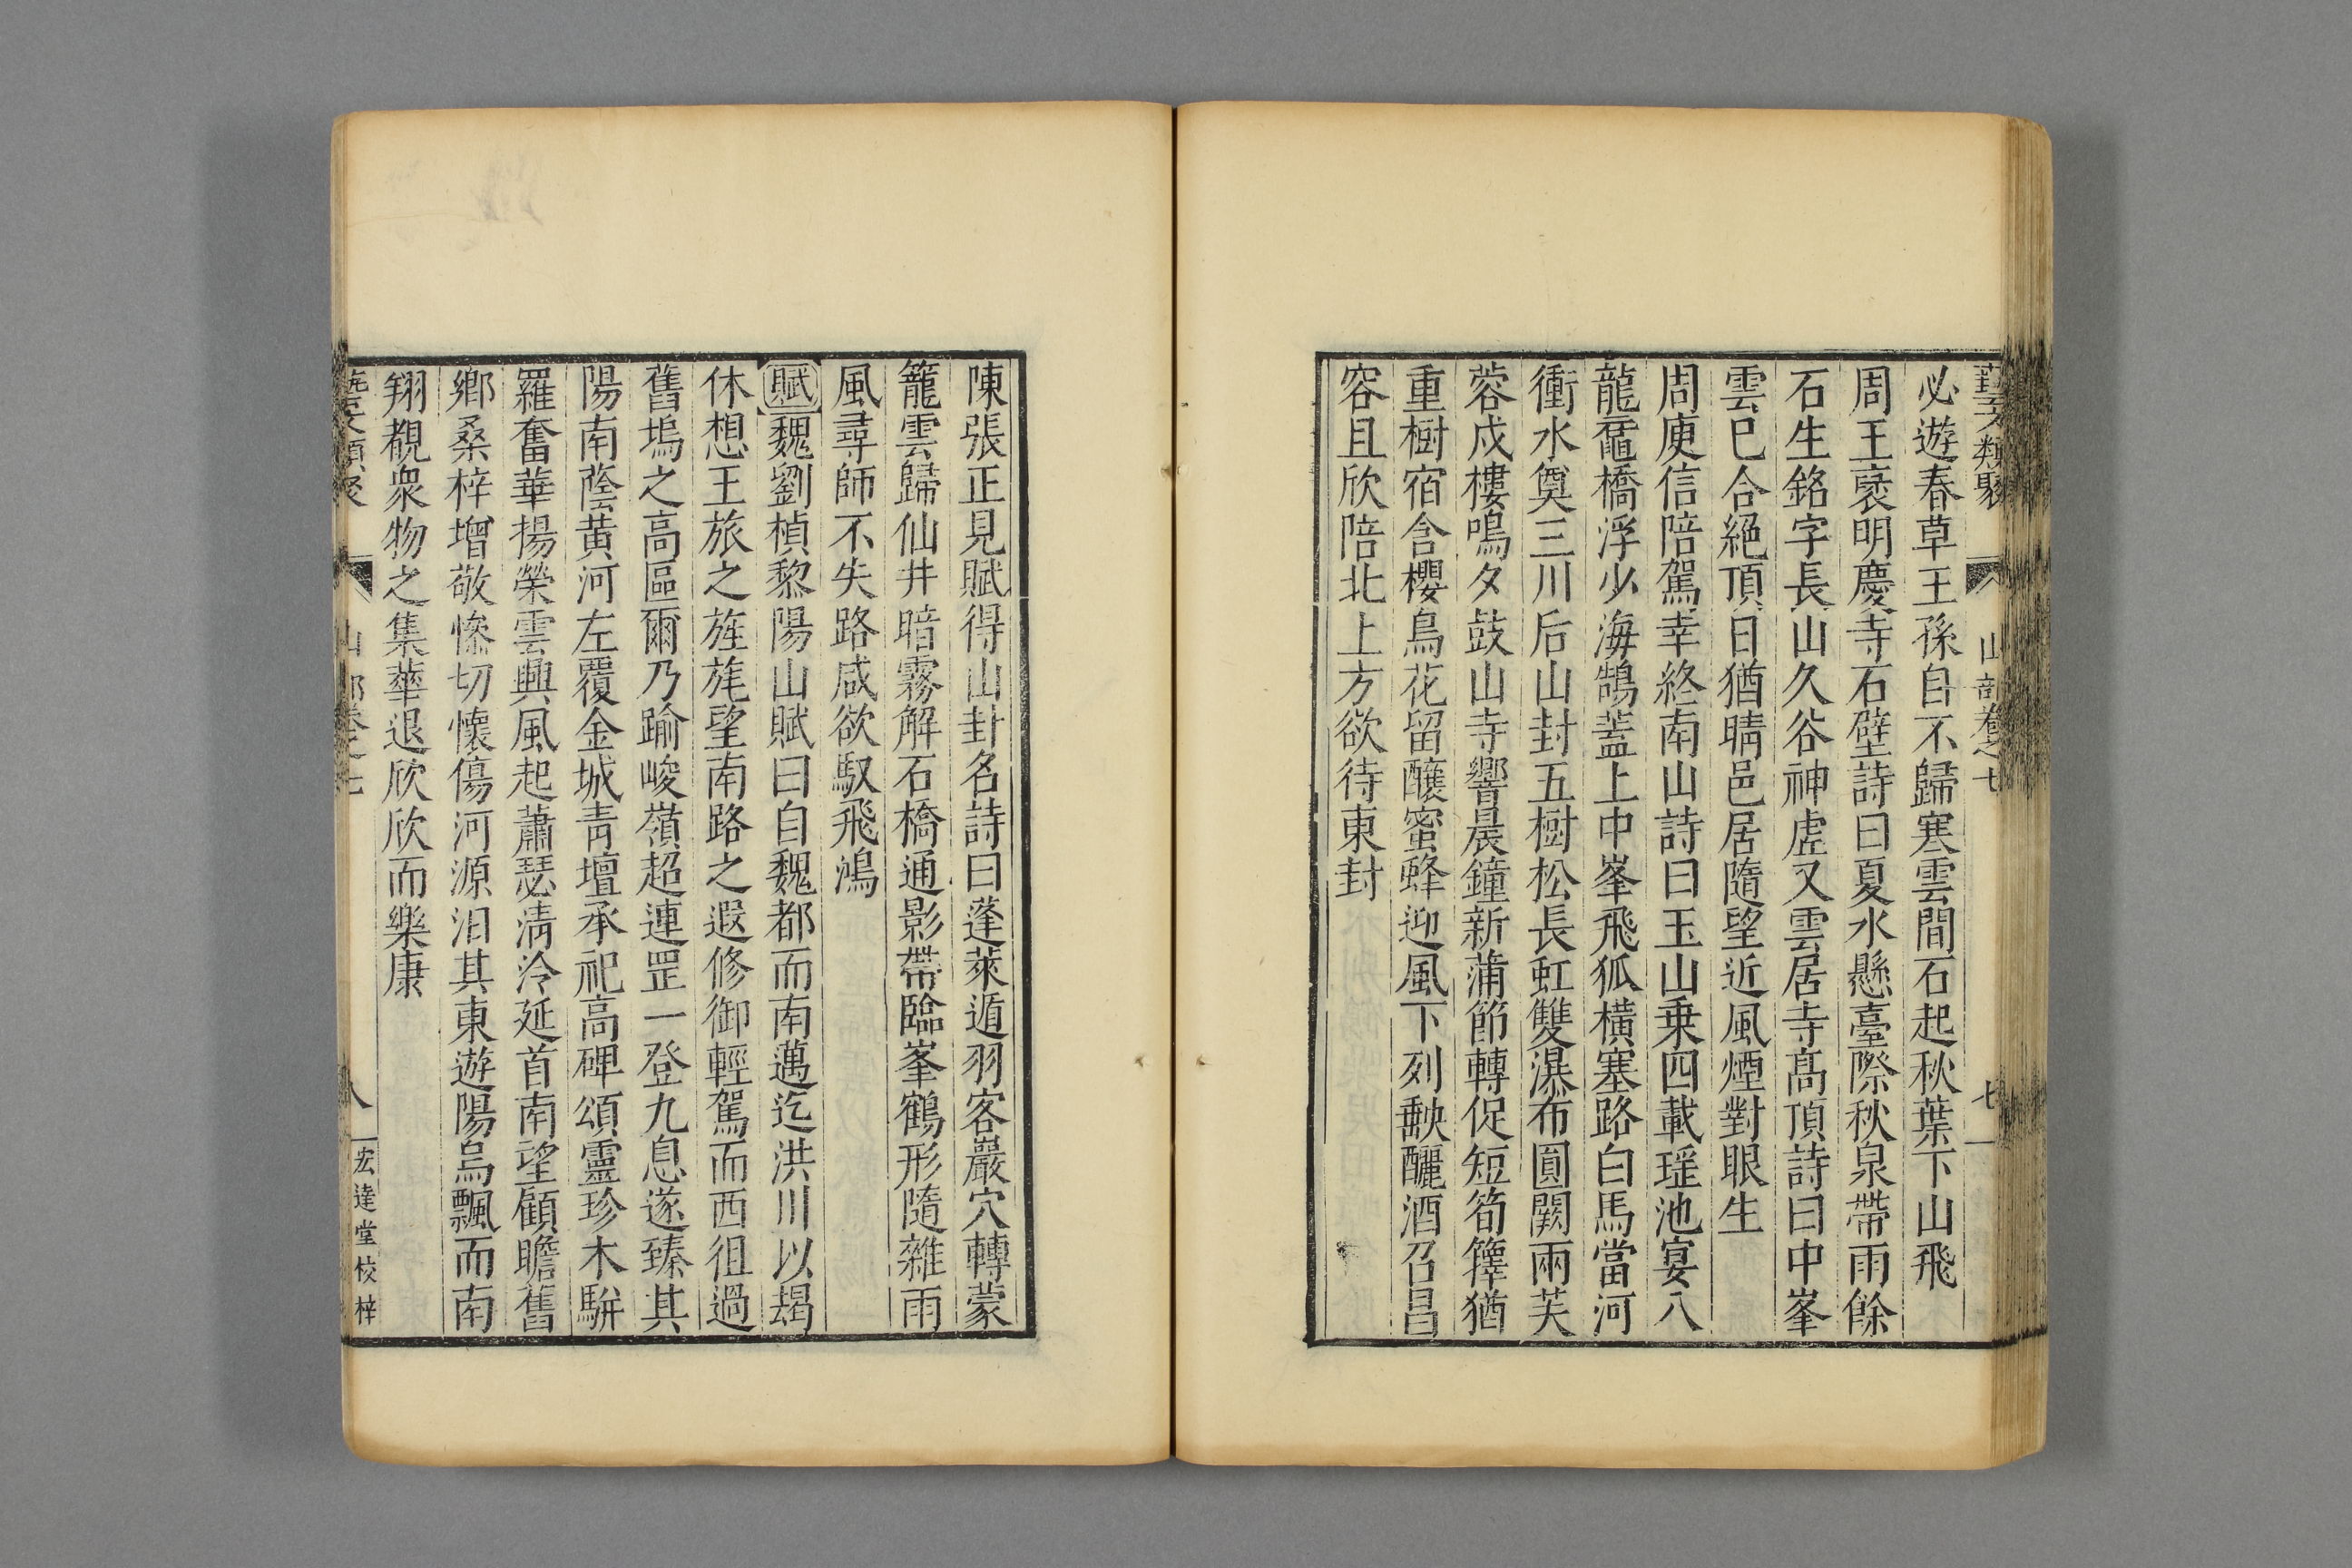 藝文類聚 山部卷之七 七
必遊春草王孫自不歸寒雲間石起秋葉下山飛
周王襃明慶寺石壁詩曰夏水懸臺際秋泉帶雨餘
石生銘字長山久谷神虛又雲居寺高頂詩曰中峯
雲已合絕頂日猶晴邑居隨望近風煙對眼生
周庾信陪駕幸終南山詩曰玉山乗四載瑶池宴八
龍鼇橋浮少海鵠蓋上中峯飛狐橫塞路白馬當河
衝水奠三川后山封五樹松長虹雙瀑布圓闕兩芙
蓉戍樓鳴夕鼓山寺響晨鐘新蒲節轉促短筍籜猶
重樹宿含櫻鳥花留釀蜜蜂迎風下列𡙇釃酒召昌
容且欣陪北上方欲待東封
陳張正見賦得山卦名詩曰蓬萊遁羽客巖穴轉蒙
籠雲歸仙井暗霧解石橋通影帶臨峯鶴形隨雜雨
風尋師不失路咸欲馭飛鴻
賦魏劉楨黎陽山賦曰自魏都而南邁迄洪川以朅
休想王旅之旌旄望南路之遐修御輕駕而西徂過
舊塢之高區爾乃踰峻嶺超連罡一登九息遂臻其
陽南蔭黃河左覆金城青壇承祀高碑頌靈珍木駢
羅奮華揚榮雲興風起蕭瑟清泠延首南望顧瞻舊
鄉桑梓增敬慘切懷傷河源汨其東遊陽烏飄而南
翔覩衆物之集華退欣欣而樂康
藝文類聚 山部卷之七 八 宏達堂校梓